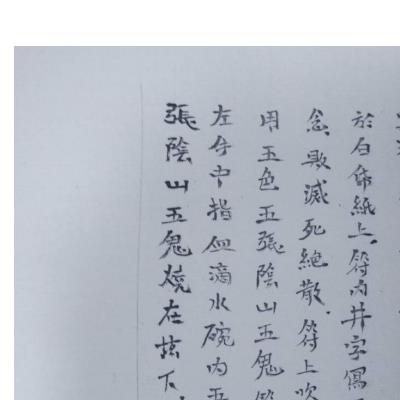 於白佈紙上、符內井字寫
念敗滅死絕散、符上吹
用五色五張陰山五鬼符
左手中指血滴水碗內五
張陰山五鬼燒在坛下、